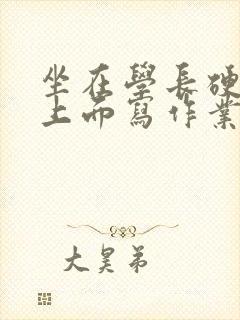 坐在學長硬
上而寫作業
大昊弟